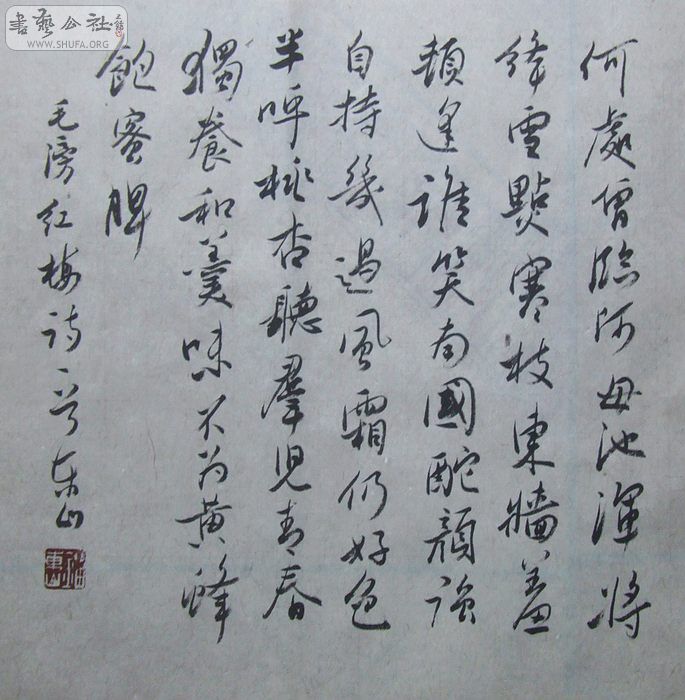 書藝公社
WWW.SHUFA.ORG
何處曾臨阿母池渾將
絳雪點寒枝東牆羞
頰逢誰笑南國酡顏強
自持幾過風霜仍好色
半呼桃杏聽羣児青春
獨養和羹味不为黄蜂
飽蜜脾
毛滂红梅诗一首东山